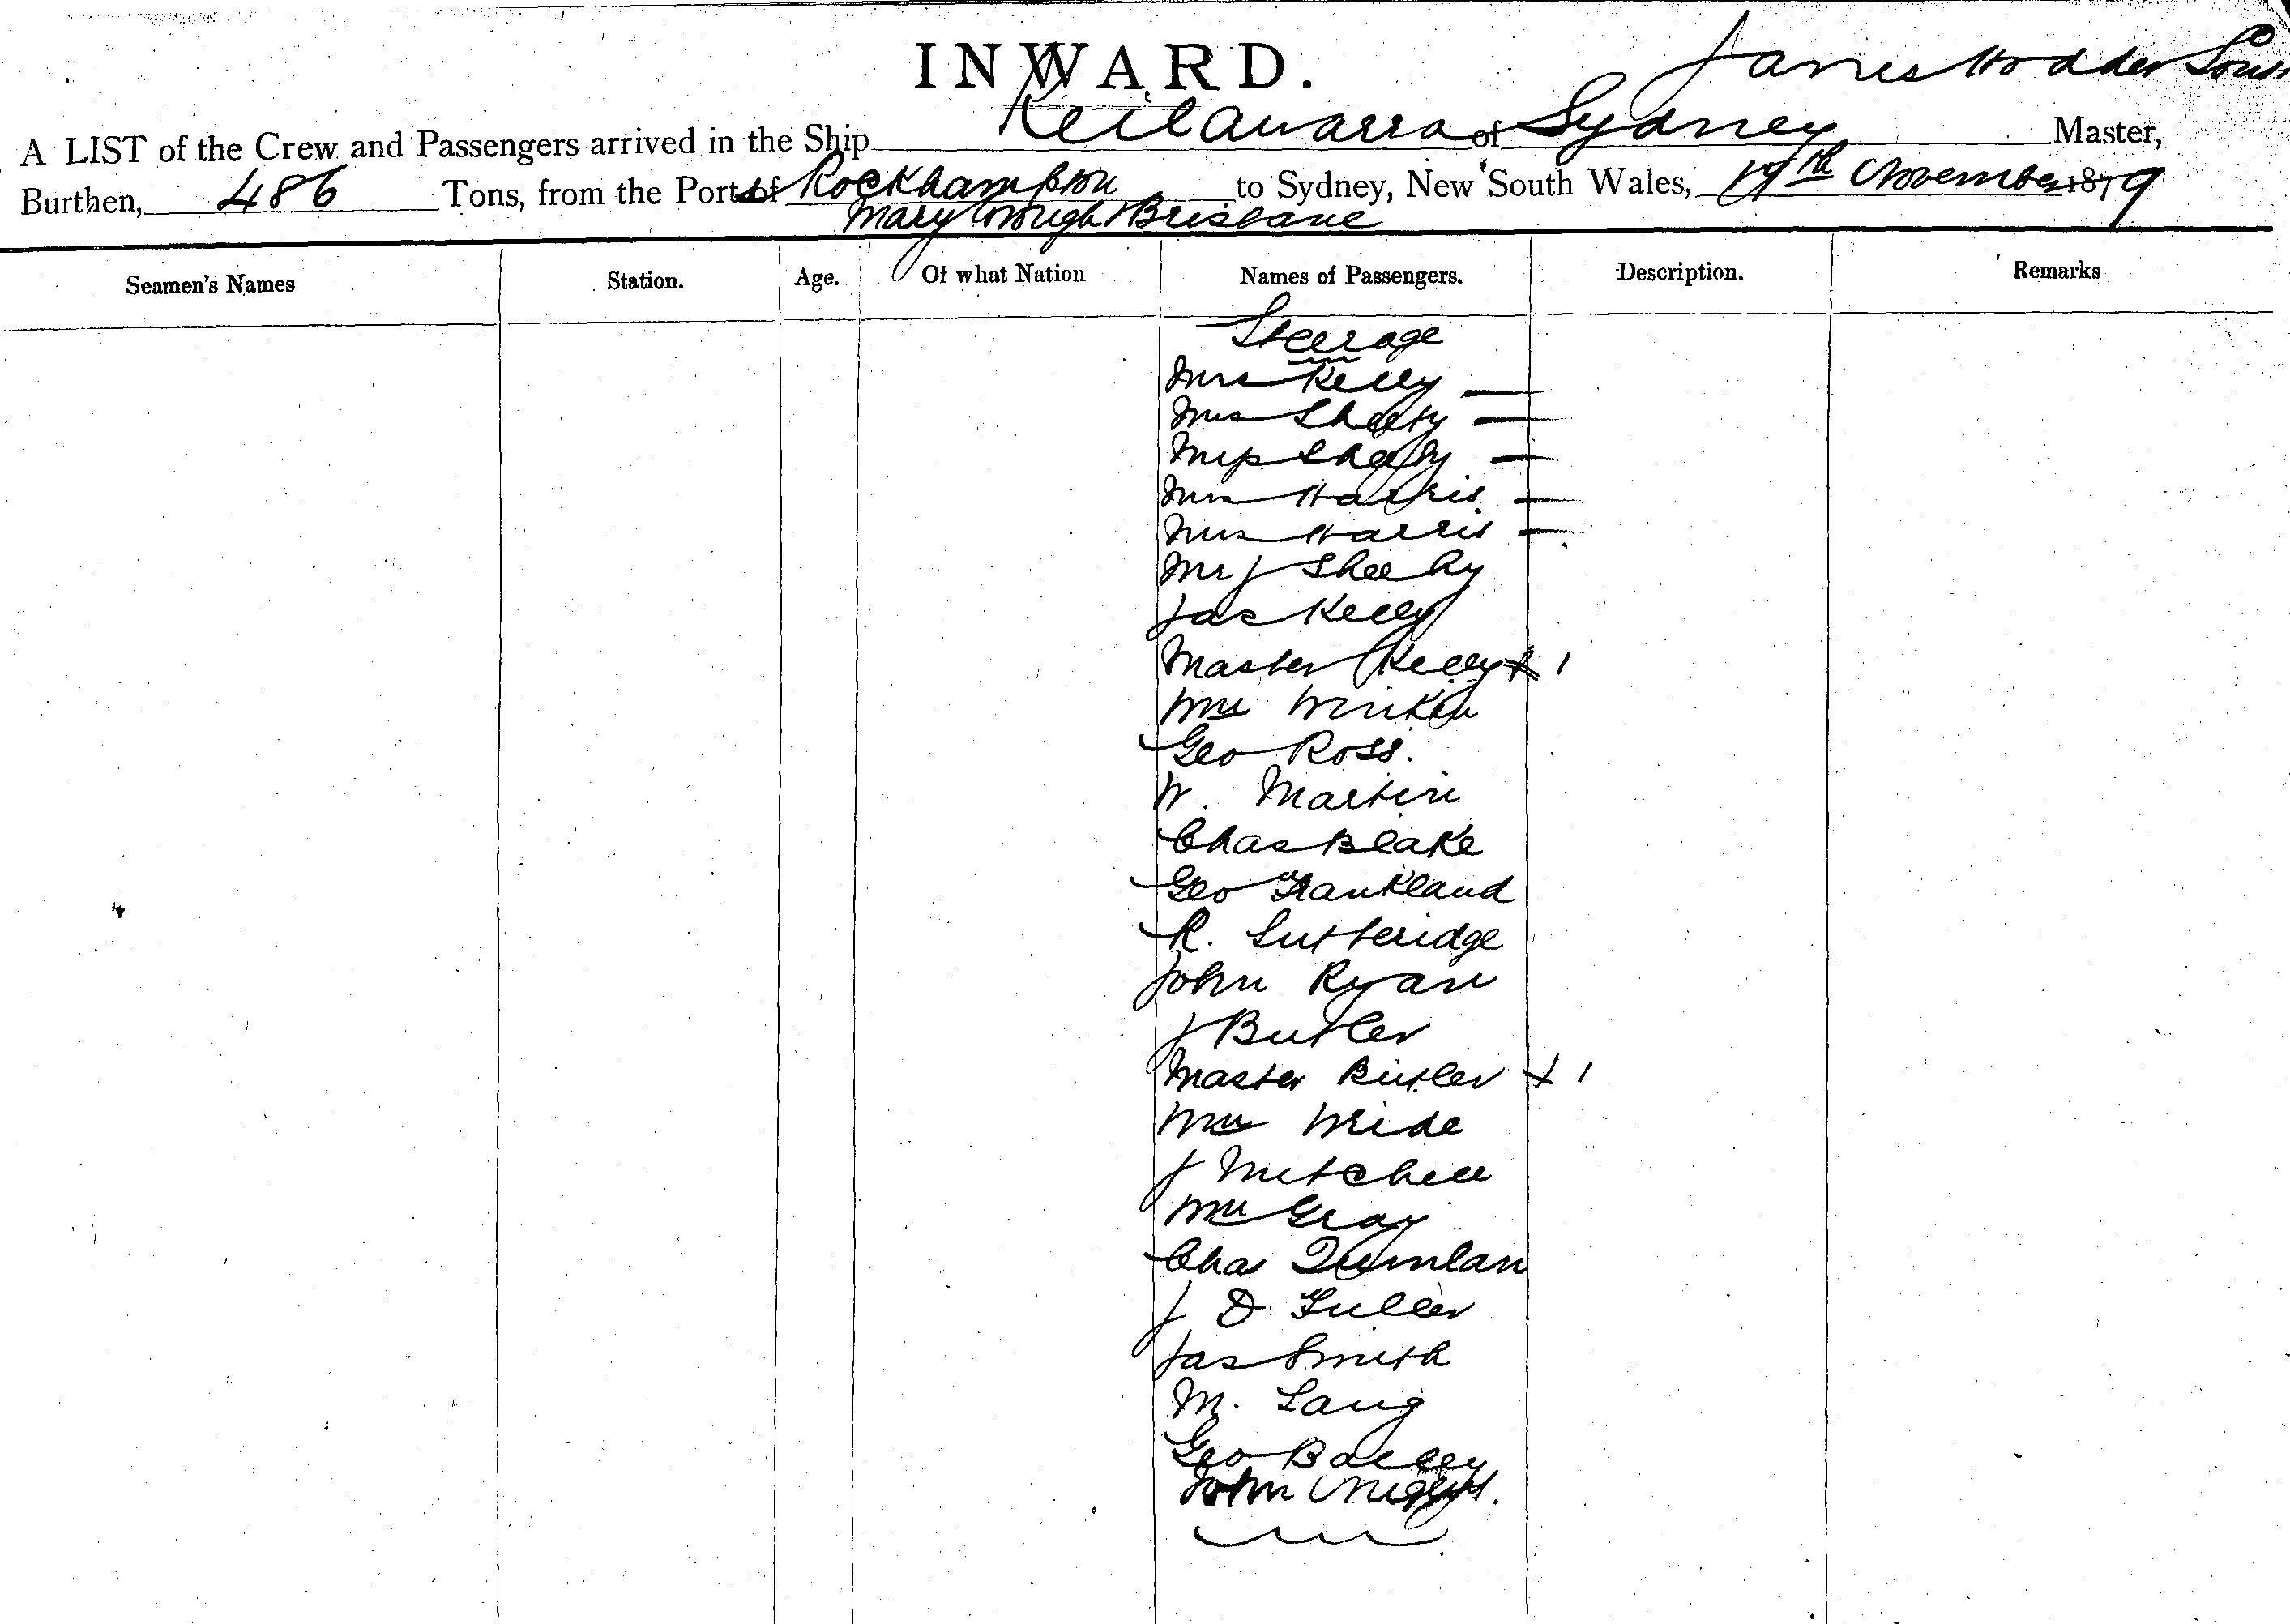 INWARD.
James Hodder
A LIST of the Crew and Passengers arrived in the Ship Keilawarra of Sydney Master,
Burthen, 486 Tons, from the Ports of Rockhampton to Sydney, New South Wales, 17th November 1879
Maryborough & Brisbane
Seamen's Names Station. Age. Of what Nation Names of Passengers. Description. Remarks
Steerage
Mrs Kelly —
Mrs Sheehy —
Miss Sheehy —
Harris —
Mrs Harris —
Mr J Sheehy
Jas Kelly
Master Kelly x 1
Geo Ross.
W. Martin
Chas Blake
Geo Frankland
R. Sutteridge
John Ryan
J Butler
Master Butler x 1
J Mitchell
Gray
Chas Quinlan
J D Fuller
Jas Smith
M. Lang
Geo Bailey
John